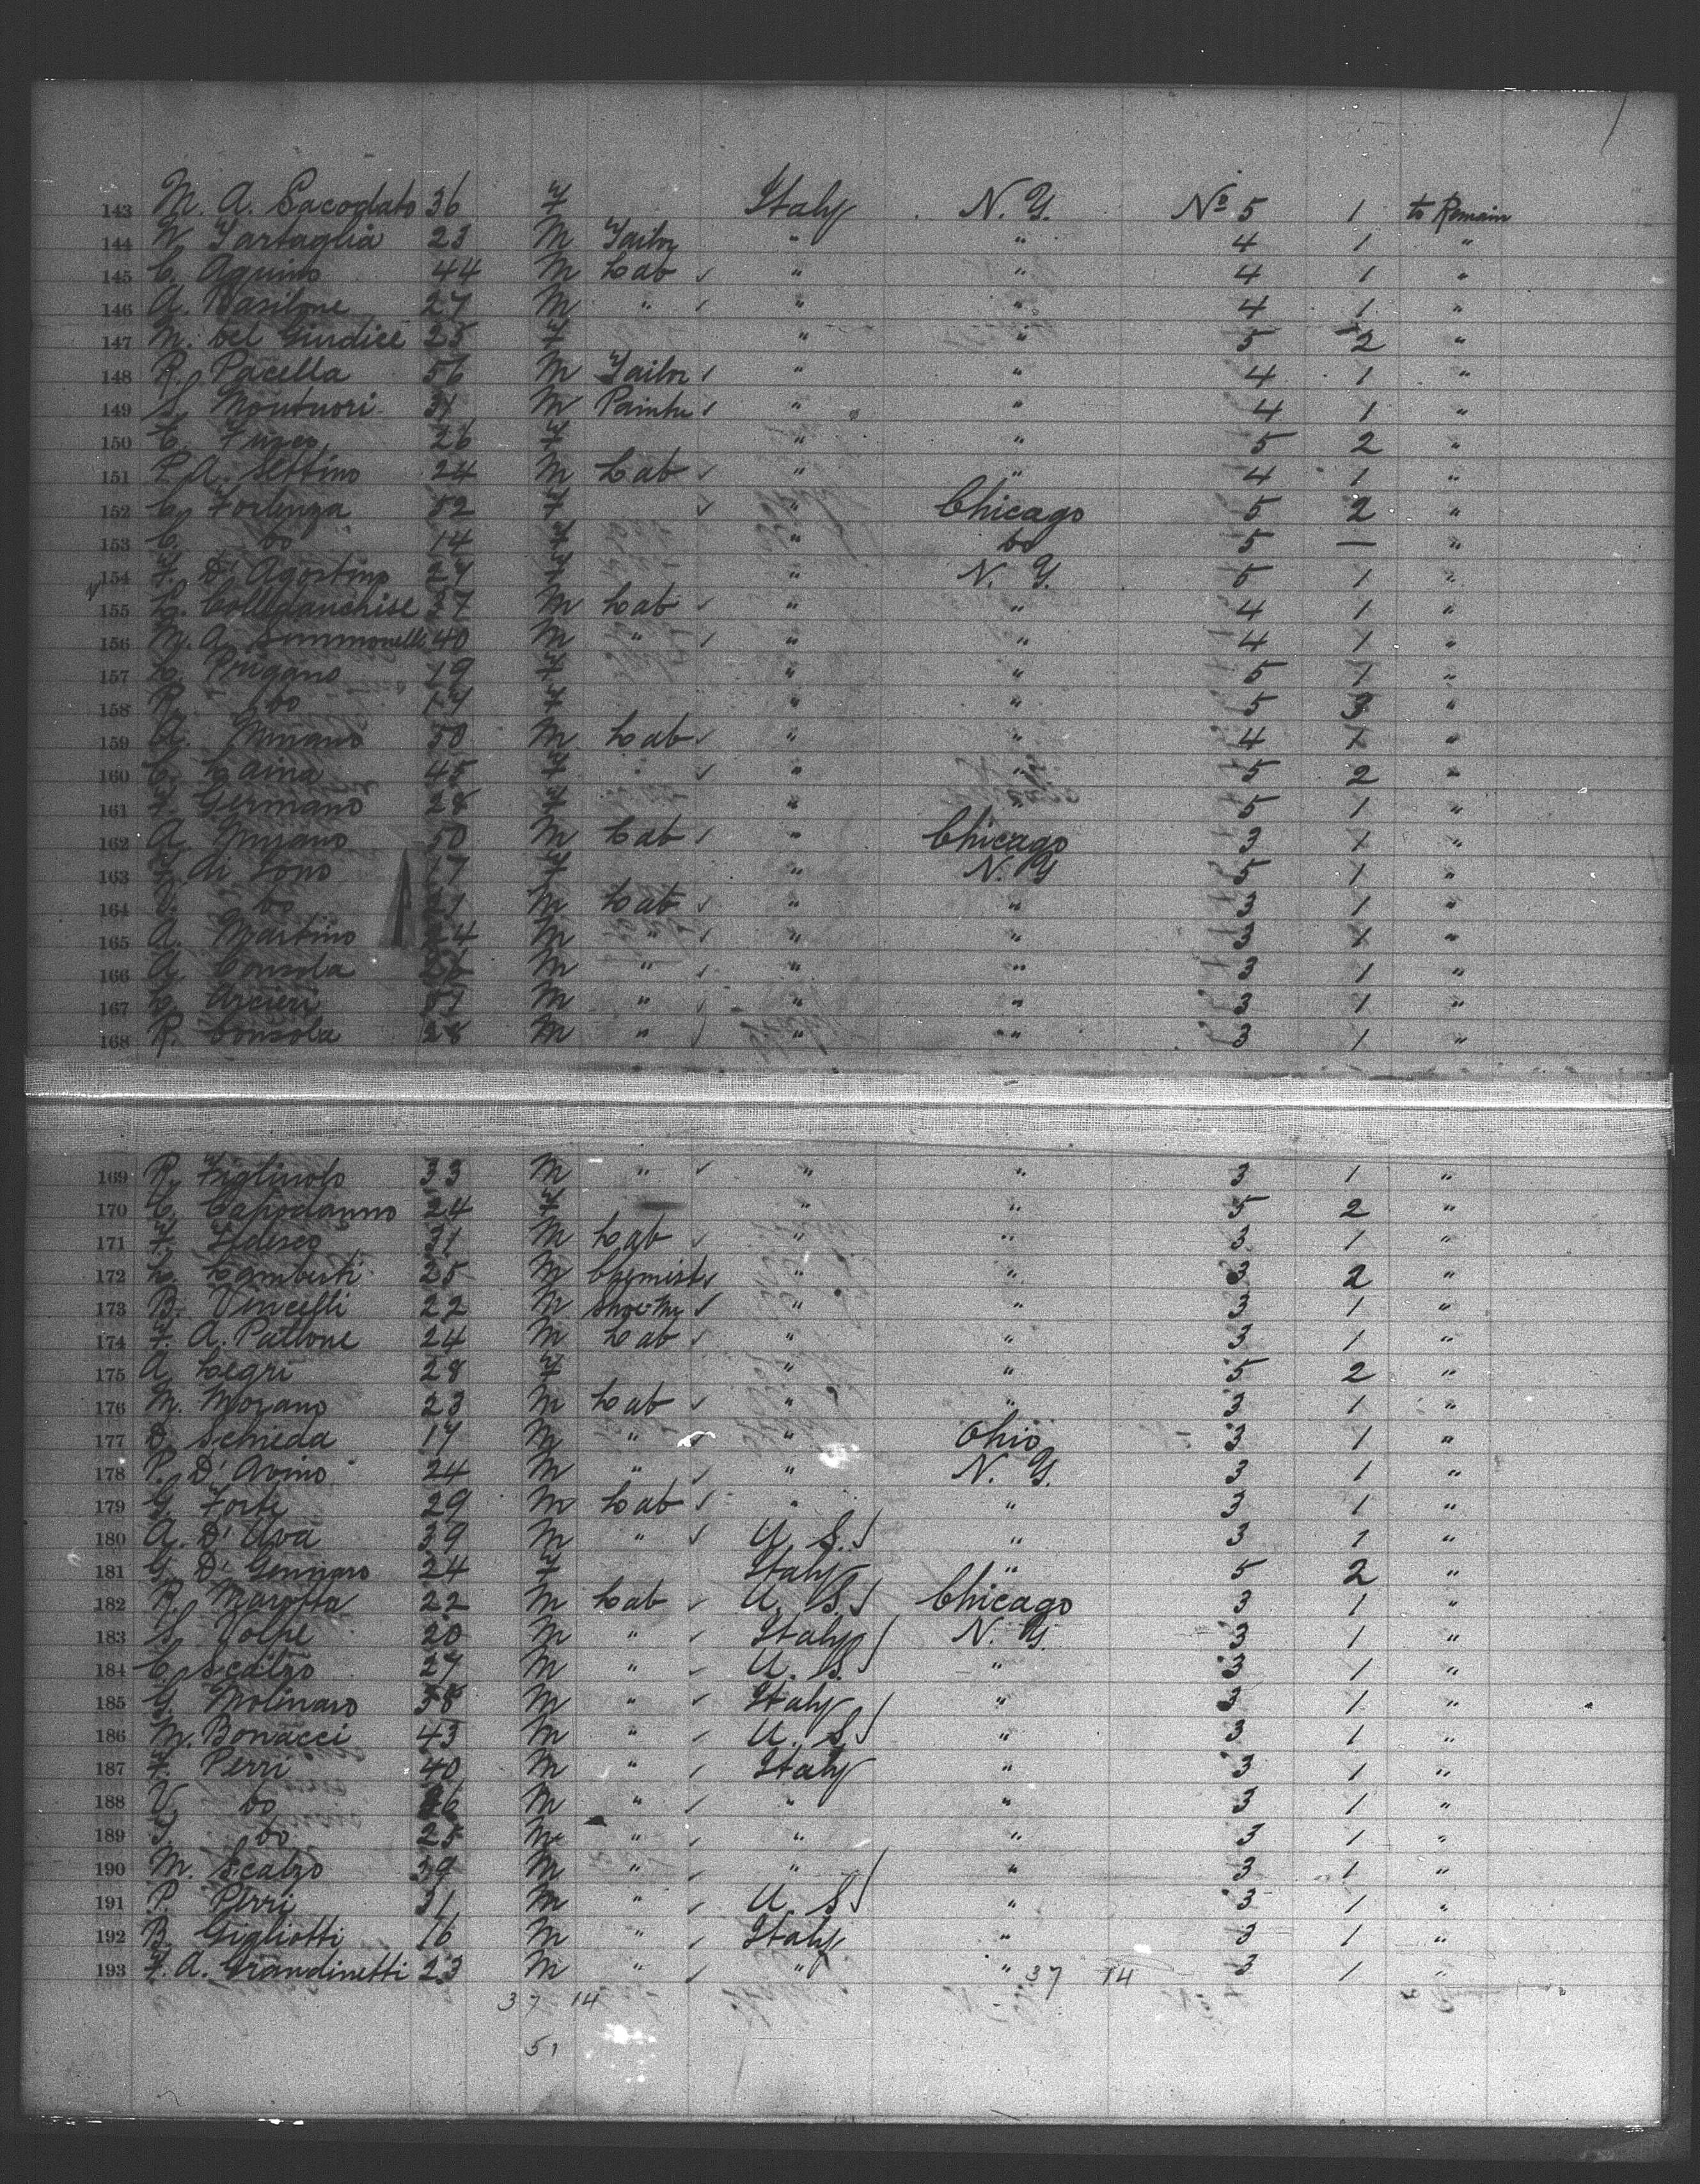 143 M. A. Sacodato 36 F Italy N. Y. No 5 1 to Remain
144 N. Tartaglia 23 M Tailor " " 4 1 "
145 C. Aquino 44 M Lab " " 4 1 "
146 A. Basilone 27 M " " " 4 1 "
147 M. Del Giudice 25 F " " 5 2 "
148 R. Pacella 56 M Tailor " " 4 1 "
149 S. Montuori 31 M Painter " " 4 1 "
150 C. Fusco 26 F " " 5 2 "
151 P. A. Settino 24 M Lab " " 4 1 "
152 C. Forlenza 52 F " Chicago 5 2 "
153 C. Do 14 F " Do 5 — "
154 F. D'Agostino 27 F " N. Y. 5 1 "
155 L. Colledanchise 37 M Lab " " 4 1 "
156 M. A. Simmonelli 40 M " " " 4 1 "
157 19 F " " 5 1 "
158 R. Do 17 F " " 5 3 "
159 50 M Lab " " 4 1 "
160 C. Laina 45 F " " 5 2 "
161 F. Germano 28 F " " 5 1 "
162 A. 50 M Lab " Chicago 3 1 "
163 di Tono 17 F " N. Y 5 1 "
164 Do 21 M Lab " " 3 1 "
165 A. Martino 24 M " " " 3 1 "
166 A. Consola 26 M " " " 3 1 "
167 L. Arcieri M " " " 3 1 "
168 R. Consola 28 M " " " 3 1 "
169 R. Figliuolo 33 M " " " 3 1 "
170 C. Capodanno 24 F " " 5 2 "
171 F. Tedesco 31 M Lab " " 3 1 "
172 L. Lamberti 25 M Chemist " " 3 2 "
173 B. Vincelli 22 M Shoe-M " " 3 1 "
174 F. A. Pallone 24 M Lab " " 3 1 "
175 A. Legri 28 F " " 5 2 "
176 M. Morano 23 M Lab " " 3 1 "
177 D. Scheda 17 M " " Ohio 3 1 "
178 P. D'Avino 24 M " " N. Y. 3 1 "
179 G. Forte 29 M Lab " " 3 1 "
180 A. D'Uva 39 M " U. S. " 3 1 "
181 G. D'Gennaro 24 F Italy " 5 2 "
182 R. Marotta 22 M Lab U. S. Chicago 3 1 "
183 S. Volpe 20 M " Italy N. Y. 3 1 "
184 C. Scalzo 27 M " U. S. " 3 1 "
185 G. Molinaro 38 M " Italy " 3 1 "
186 M. Bonacci 43 M " U. S. " 3 1 "
187 F. Perri 40 M " Italy " 3 1 "
188 V. Do M " " " 3 1 "
189 Do 25 M " " " 3 1 "
190 M. Scalzo 39 M " " " 3 1 "
191 P. Perri 31 M " U. S " 3 1 "
192 B. Gigliotti 16 M " Italy " 3 1 "
193 F. A. Grandinetti 23 M " " " 37 14 3 1 "
37 14
51